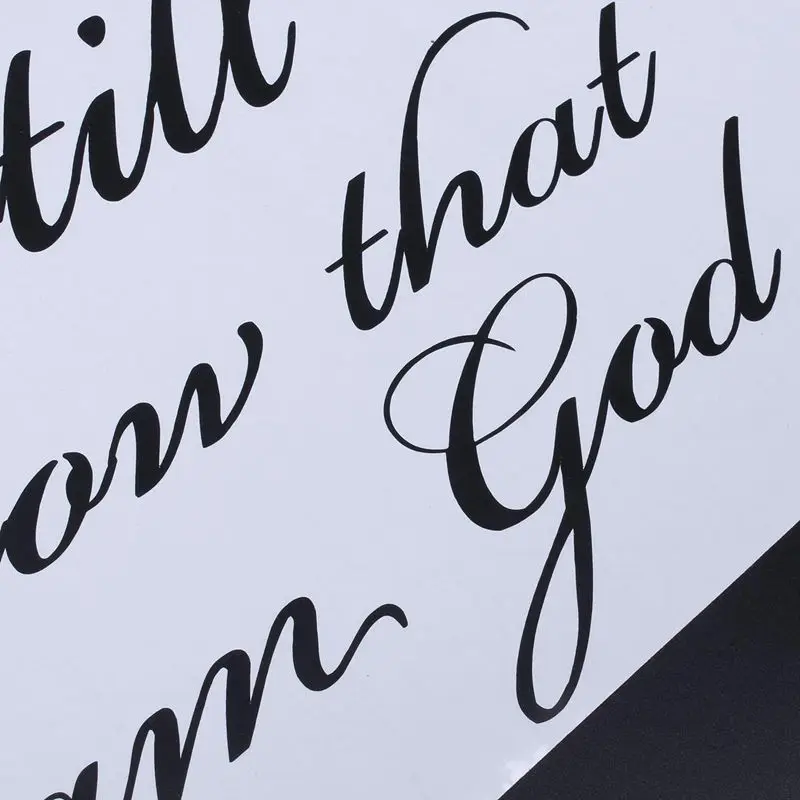 till
ow that
am God